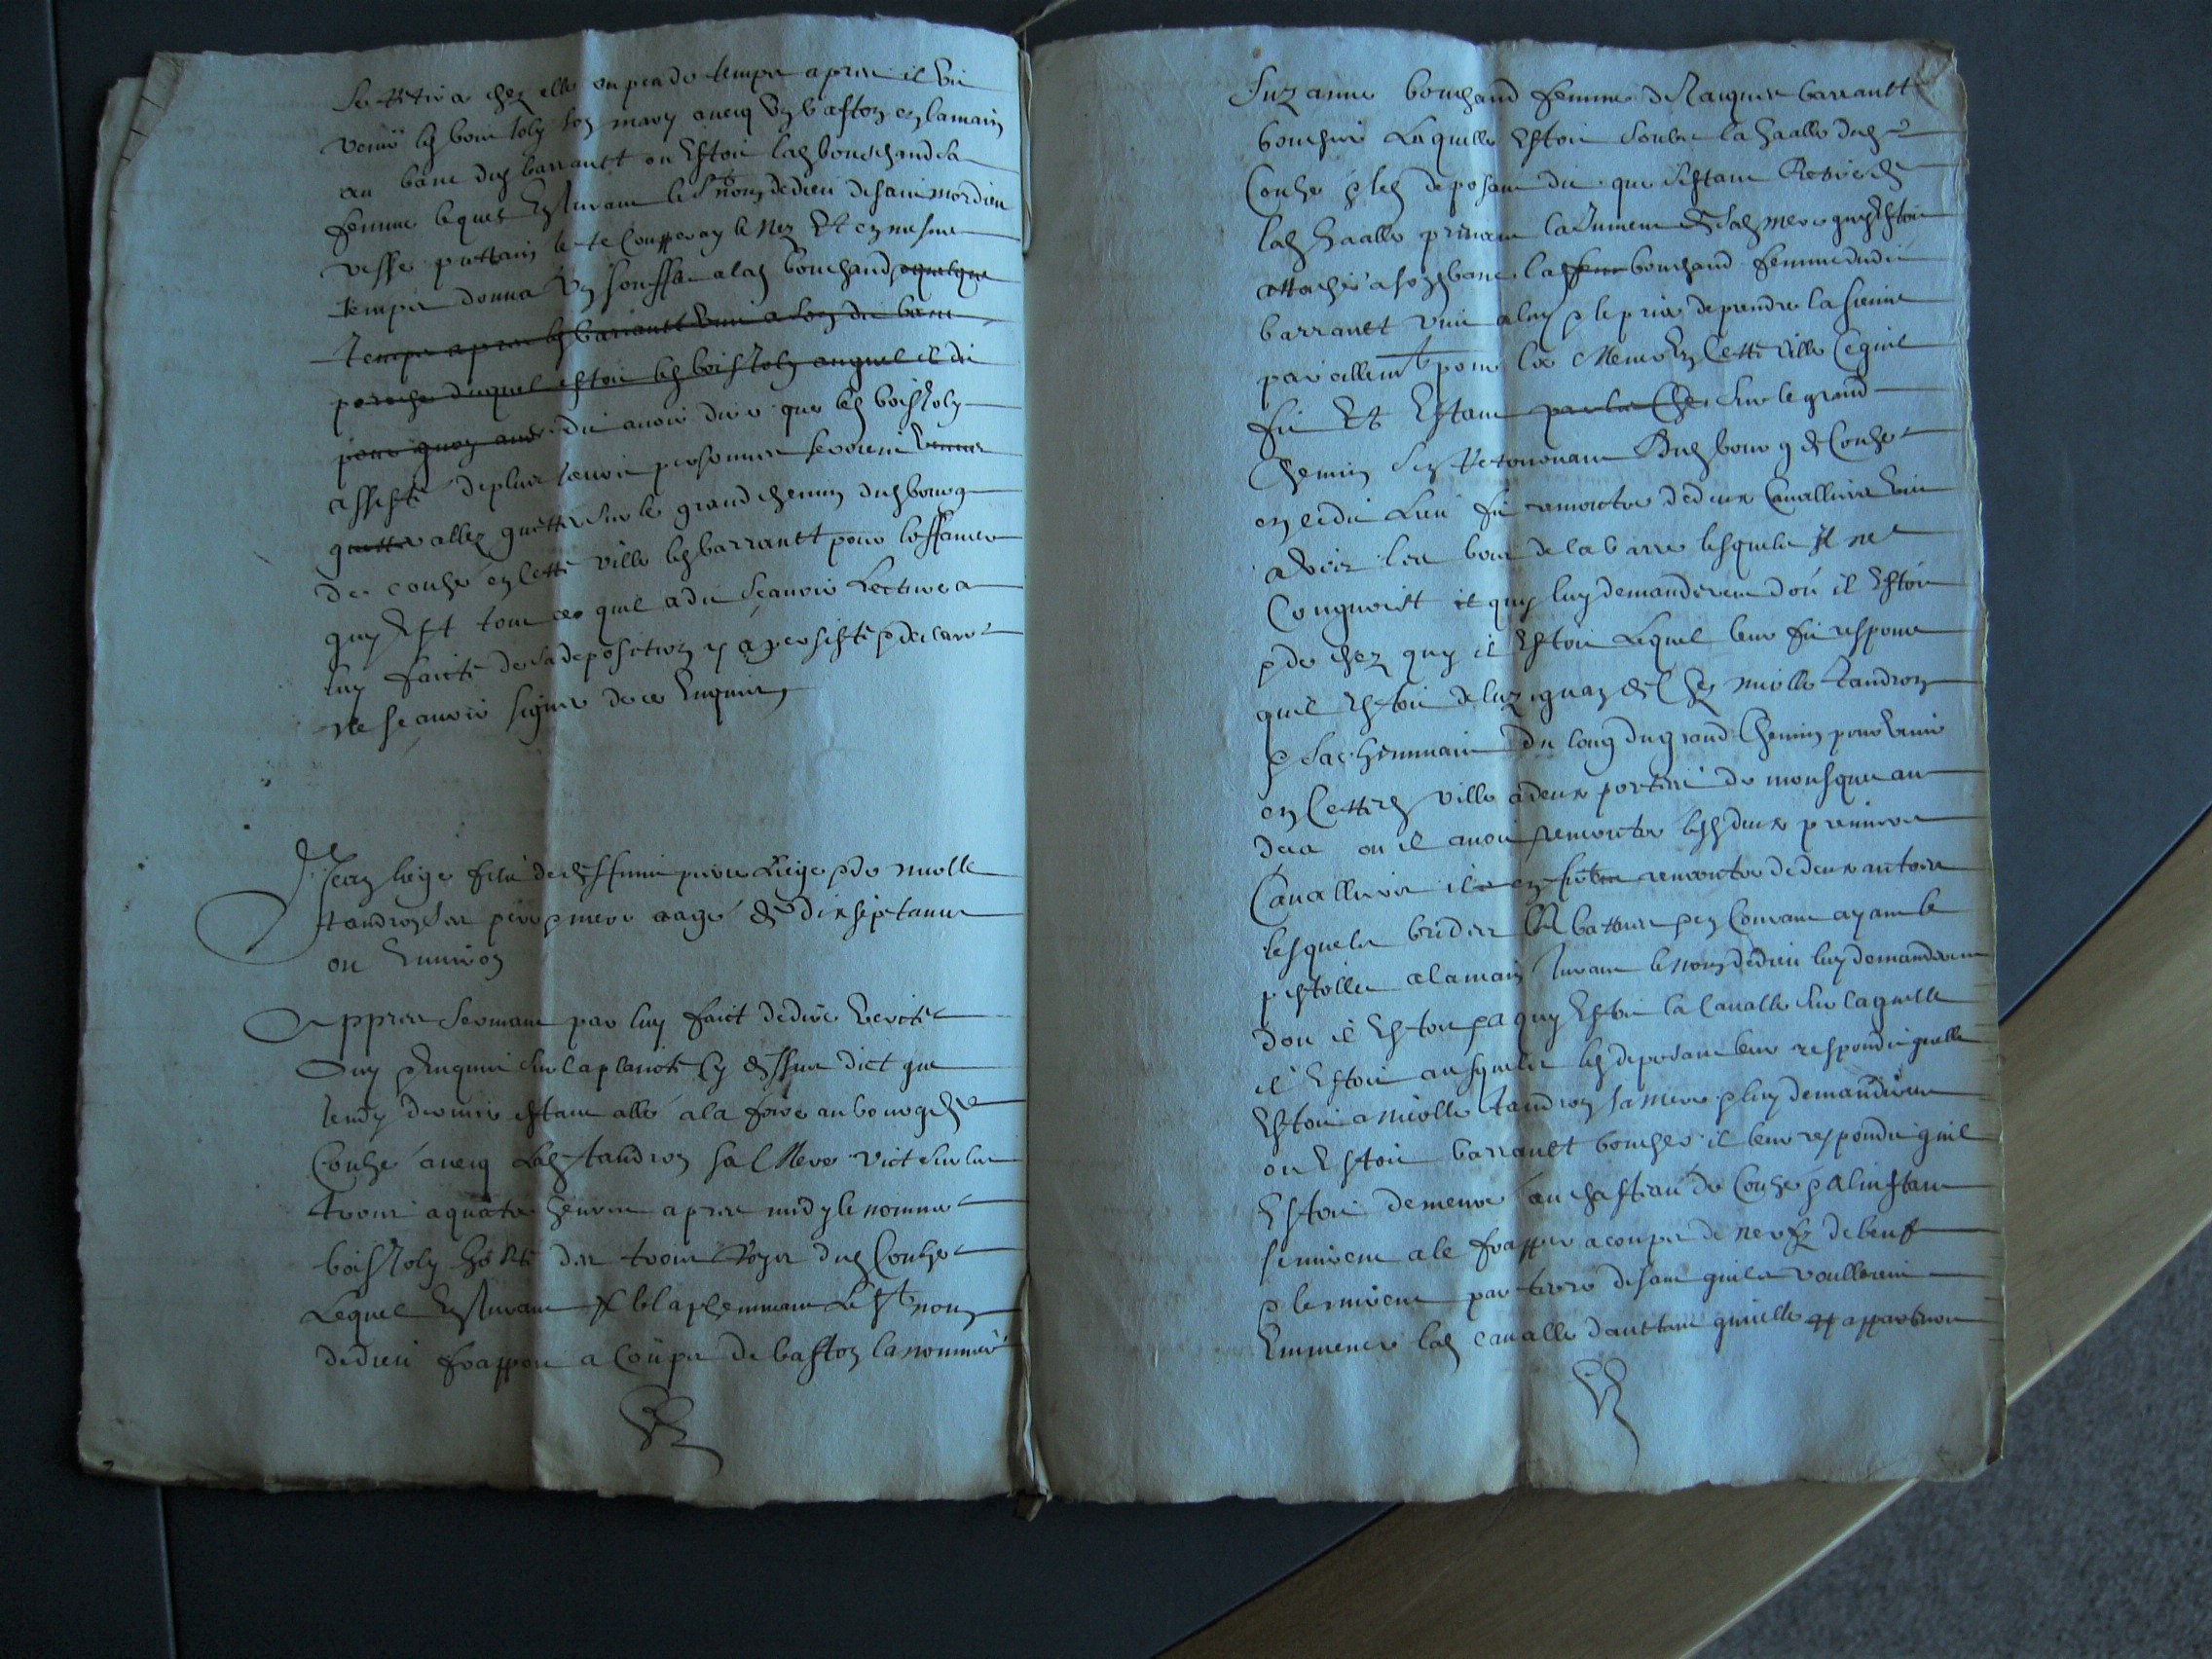 se retira chez elle un peu de temps apres il vit
venir led boisjoly son mary avecq un baston en la main
au banc dud barrault ou estoit lad bouschand sa
femme lequel en jurant le st nom de dieu disant mordieu
vesse puttain je te coupperay le nez Et en mesme
temps donna un soufflet a lad bouchand quelque
temps apres led barrault vint a son dit banc
proche duquel estoit led boisjoly auquel il dit
pour quoy dit avoir dire que led boisjoly
assisté de plusieurs personnes
guetter allez guetter sur le grand chemin dud bourg
de couhé en cette ville led barrault pour loffancer
quy est tout ce quil a dit scavoir Lecture a
luy faicte de sa deposition y a persisté & declaré
ne scavoir signer de ce Enquis
Jean liege filz de deffunt pierre Liege & de
tandron ses pere & mere aagé de dix sept ans
ou Environ
Appres serment par luy faict de dire verité
Ouy & Enquis sur la plainte cy dessus dict que
jeudy dernier estant allé a la foire au bourg de
Couhé avecq lad tandron sa Mere vict sur les
trois a quatre heures apres midy le nommé
boisjoly hoste des trois Roys dud Couhé
Lequel en jurant & blasphemmant Le st nom
de dieu frappoit a coups de baston la nommée
Suzanne bouchand femme de barrault
boucher Laquelle Estoit soubz la halle dud
Couhé & led deposant dit que sestant Retiré de
lad halle prenant la jument de sad mere quy Estoit
attachée a son banc lad bouchand femme dudit
barrault vint a luy & le pria de prendre la sienne
pareillemt pour la Mener en cette ville ce quil
fit Et Estant par les che sur le grand
Chemin sen Retournant dud bourg de Couhé
en ce dit Lieu fit rencontre de deux Cavalliers
de la barre lesquels il ne
Congnoist et quy luy demanderent dou il Estoit
& de chez quy il Estoit Lequel leur fit responce
quil Estoit de luzignan & chez tandron
& sacheminant du long du grand Chemin pour venir
en cette d ville a deux portées de mousquet au
dela ou il avoit rencontré lesd deux premiers
Cavalliers il en rencontre de deux autres
lesquels brides abattues & en Courant ayant le
pistollet a la main jurant le nom de dieu luy demanderent
dou il Estoit & a quy Estoit la Cavalle sur laquelle
il Estoit ausquels led deposant leur respondit quelle
Estoit a tandron sa mere & luy demanderent
ou Estoit barrault boucher il leur respondit quil
Estoit demeuré au chasteau de Couhé & a linstant
se mirent a le frapper a coups de nerfz de beuf
& le mirent par terre disant quilz voulloient
Emmener lad cavalle dauttant quelle appartenoit